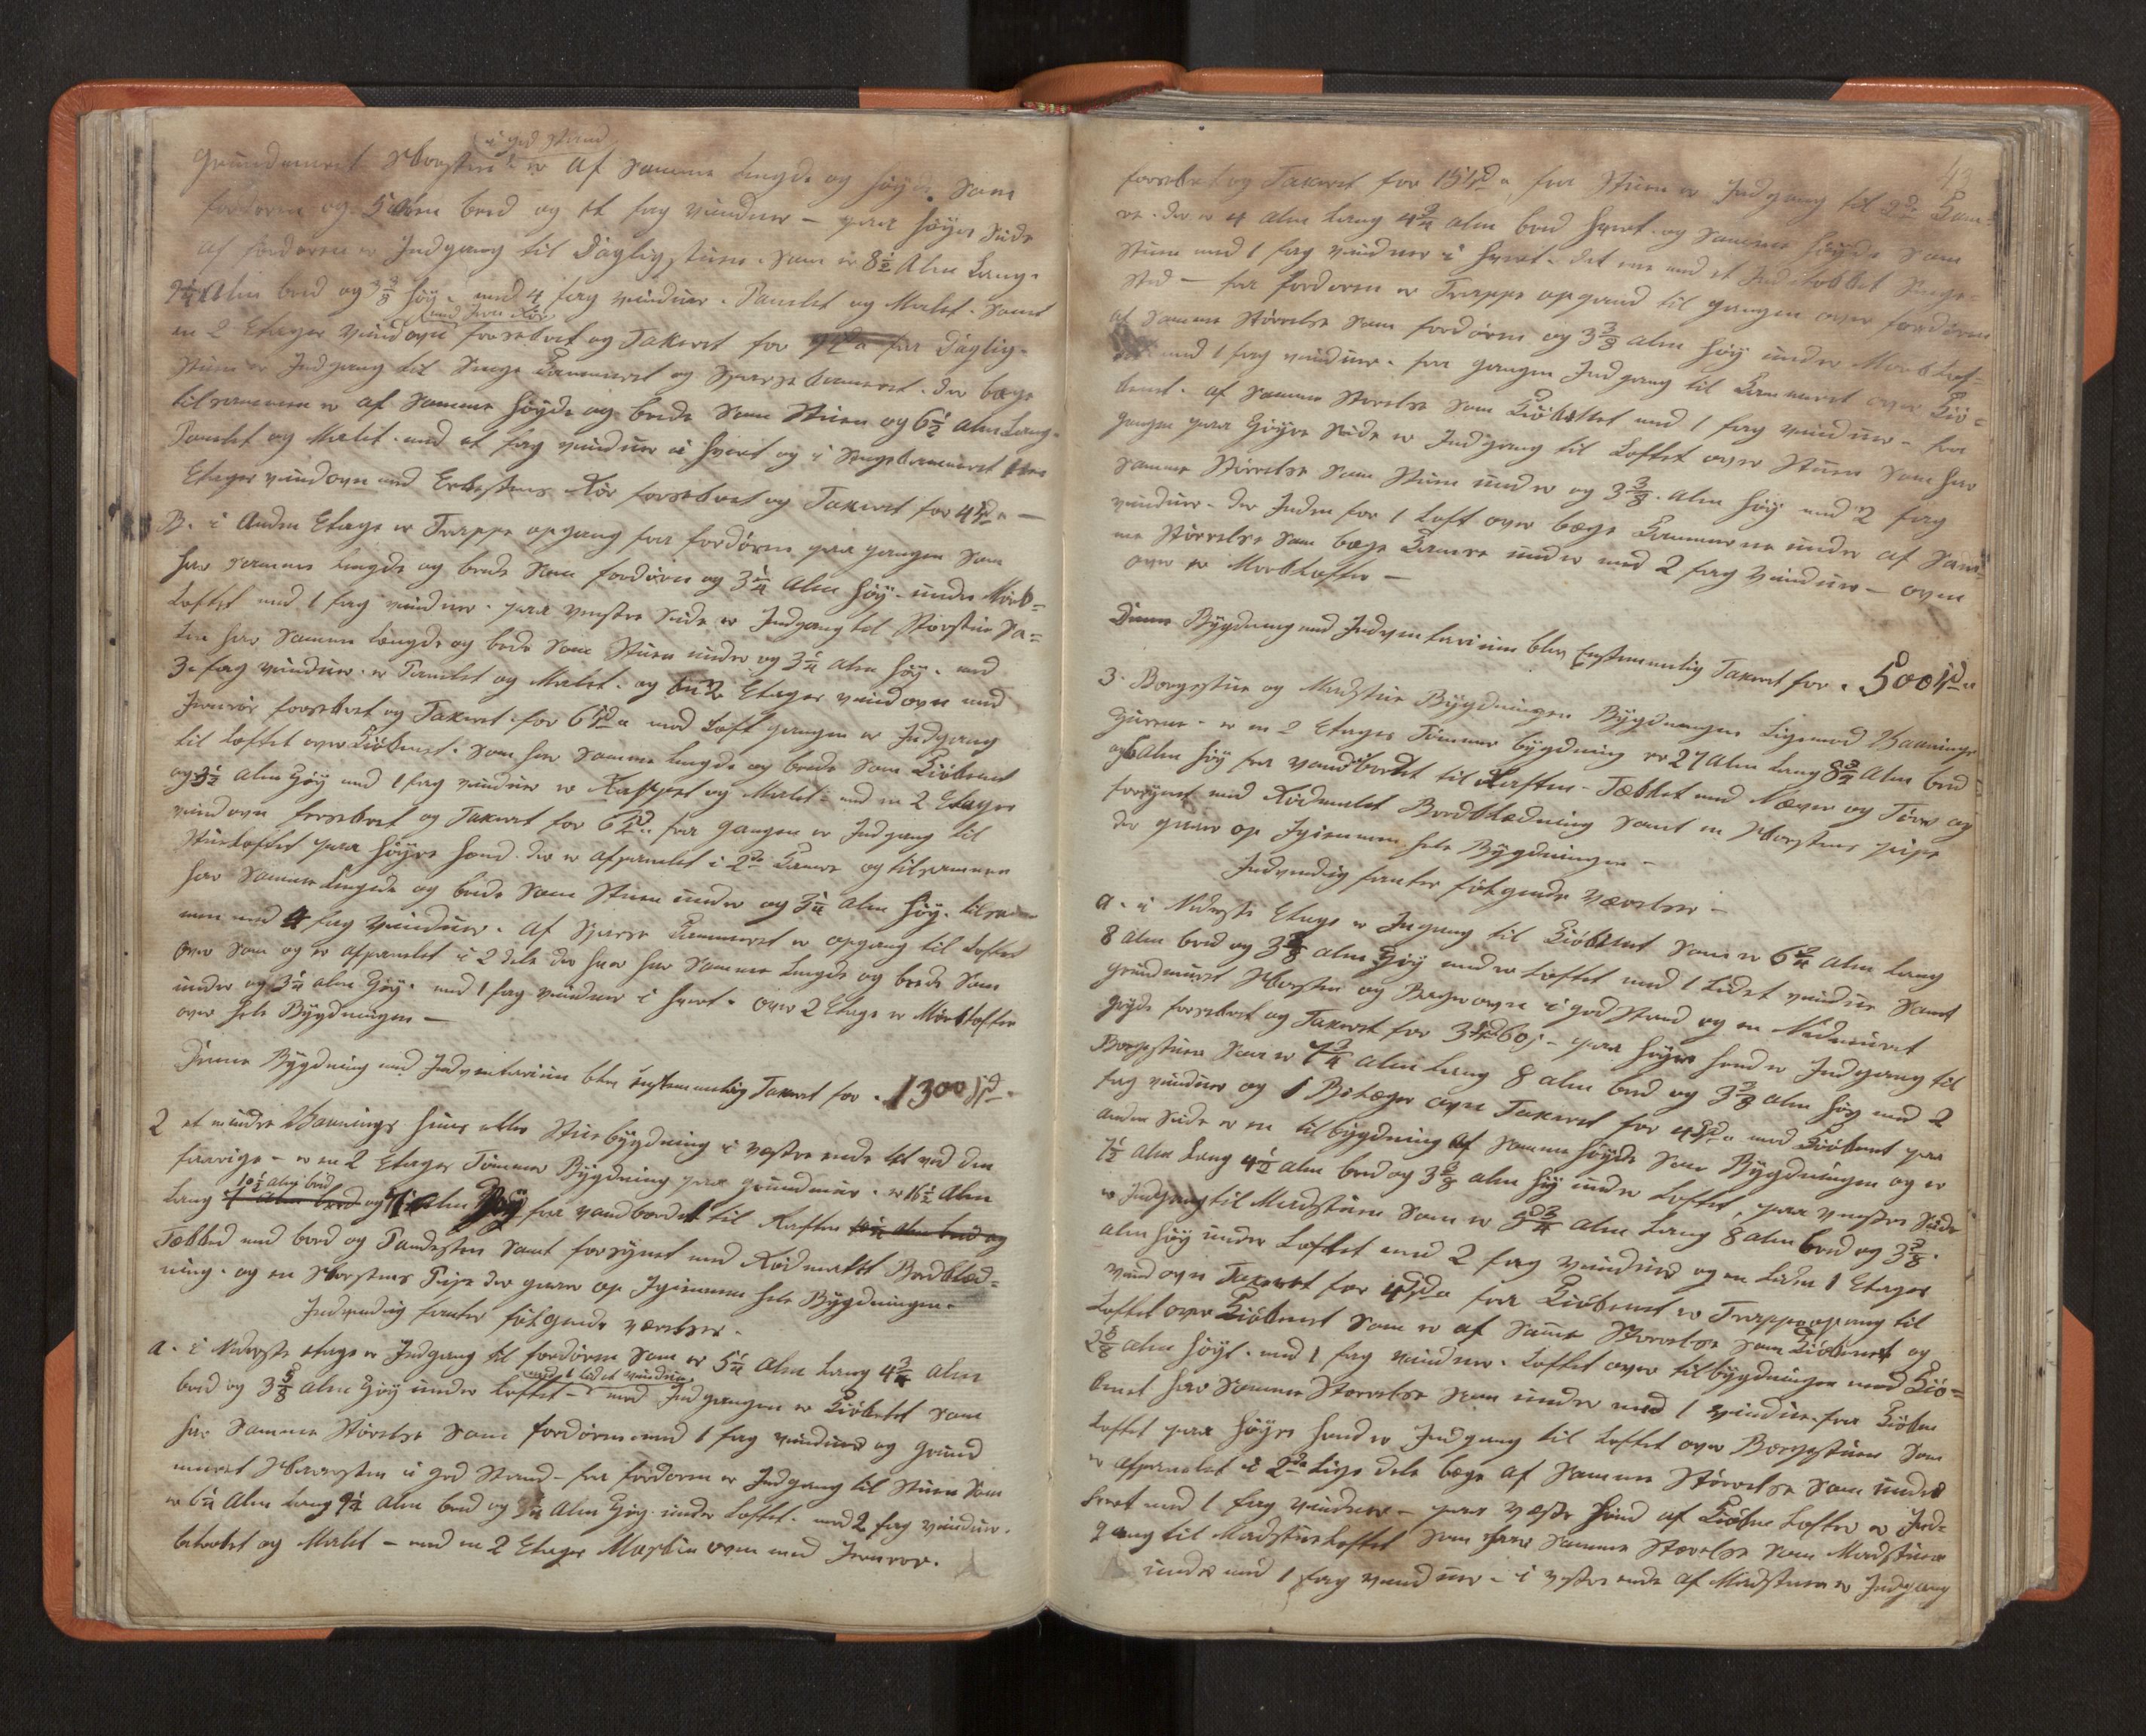 i god Stand
Grundmuret Skorsteen er af Samme Lengde og høyde Som
fordøren og 5 Alen bred og et fag vinduer - paa høyre Side
af fordøren er Indgang til Dagligstuen. Som er 8½ Alen Lang.
9¼ Alen bred og 3⅜ høy. med 4 fag vinduer. Panelet og Malet. Samt
med Jern Rør
en 2 Etages vindovn forsekret og Takseret for fra Daglig-
Stuen er Indgang til Senge Kammeret og Spisse kameret. der bæge
tilsammen er af Samme høyde og brede Som Stuen og 6½ Alen Lang.
Panelet og Malet. med et fag vinduer i hvert og i Sengekammeret
Etages vindovn med Rør forsekret og Takseret for 4 Spd -
B. i Anden Etage er Trappe opgang fra fordøren paa gangen Som
har samme Lengde og brede Som fordøren og 3¼ Alen høy. under Mørk-
Loftet med 1 fag vinduer. paa venstre Side er Indgang til Storstue Sa-
len har Samme Længde og brede Som Stuen under og 3¼ Alen høy. med
3 fag vinduer. er Panelet og Malet. og en 2 Etages vindovn med
Jernrør forsekret og Takseret for 6 Spd med Loft gangen er Indgang
til Loftet over Kiøkenet. Som har Samme Lengde og brede Som Kiøkenet
og 3¼ Alen høy med 1 fag vinduer er og Malet. med en 2 Etages
vindovn forsekret og Takseret for 6 Spd fra gangen er Indgang til
Stueloftet paa høyre haand. der er afpanelet i 2de Kamre og tilsammen
har Samme Lengde og brede Som Stuen under og 3¼ Alen høy. tilsam-
men med 4 fag vinduer. af Spisse Kammeret er opgang til Loftet
over Som og er afpanelet i 2 dele der har Samme Lengde og brede Som
under og 3¼ Alen høy. med 1 fag vinduer i hvert. over 2 Etage er Mørkloften
over hele Bygdningen -
Denne Bygdning med Indventarium blev Enstemmelig Takseret for . 1300 Spd.
2 et mindre Vaanings huus eller Stuebygdning i vestre ende tet ved den
forrige - er en 2 Etages Tømmer Bygdning paa grundmuur. er 16½ Alen
10½ Alen bred
Lang og Alen høy fra vandbordet til Raften
Tækked med bord og Pandesten Samt forsynet med Rødmalet Bordklæd-
ning. og en Skorstens Pipe der gaaer op Igiennem hele Bygdningen.
Indvendig fantes følgende værelser.
a. i Nederste etage er Indgang til fordøren Som er 5¼ Alen Lang 4¾ Alen
med 1 Lidet vindue
bred og 3⅝ Alen høy under Loftet - med Indgangen er Kiøkenet Som
har Samme Størelse Som fordøren med 1 fag vinduer og Grund
muret Skorsten i god Stand - fra fordøren er Indgang til Stuen Som
er 6¼ Alen Lang 9¼ Alen bred og Alen høy under Loftet. med 2 fag vinduer.
betrækket og Malet - med en 2 Etages Maskin oven med Jernrør.
43
forsekret og Takseret for 15 Spd fra Stuen er Indgang til 2de Kam-
re. der er 4 Alen Lang 4¾ Alen bred hvert. og Samme høyde Som
Stuen med 1 fag vinduer i hvert. det ene med et Senge-
sted - fra fordøren er Trappe opgang til gangen over fordøren
af Samme Størrelse Som fordøren og 3⅜ Alen høy under Mørkloft-
med 1 fag vinduer. fra gangen Indgang til Kammeret over Kiø-
kenet. af Samme Størelse Som Kiøkenet med 1 fag vinduer - fra
gangen paa høyre Side er Indgang til Loftet over Stuen Som har
Samme Størrelse Som Stuen under og 3⅜ Alen høy med 2 fag
vinduer. der Inden for 1 Loft over bæge Kammerne under af Sam-
me Størrelse Som bæge Kamre under med 2 fag vinduer - oven
over er Mørkloften -
Denne Bygdning med Indventarium blev Enstemmelig Takseret for . 500 Spd
3. Borgestue og Madstue Bygdningen Bygdningen Ligemod Vaanings
Huusene. er en 2 Etages Tømmer bygdning er 27 Alen Lang 8¾ Alen bred
og 6 Alen høy fra vandbordet til Raften - Tækket med Næver og Torv og
forsynet med Rødmalet Bordklædning Samt en Skorstens pipe
der gaaer op Igiennem hele Bygdningen -
Indvendig fantes følgende Værelser -
a. i Nederste Etage er Ingang til Kiøkenet Som er 6¾ Alen Lang
8 Alen bred og 3⅜ Alen høy under Loftet med 1 Lidet vindue Samt
grundmuret Skorsten og Bagerovn i god Stand og en Nedmuret
gryde forsekret og Takseret for 3 Spd 60 s - paa høyre haand er Indgang til
Borgestuen Som er 7¾ Alen Lang 8 Alen bred og 3⅜ Alen høy med 2
fag vinduer og 1 ovn Takseret for 4 Spd med Kiøkenet paa
anden Side er en tilbygdning af Samme høyde Som Bygdningen og er
7½ Alen Lang 4½ Alen bred og 3⅜ Alen høy under Loftet, paa venstre Side
er Indgang til Madstuen Som er Alen Lang 8 Alen bred og 3⅜
Alen høy under Loftet med 2 fag vinduer og en Liden 1 Etages
vindovn Takseret for 4 Spd fra Kiøkenet er Trappeopgang til
Loftet over Kiøkenet Som er af Samme Størrelse Som Kiøkenet og
2⅝ Alen høyt. med 1 fag vinduer. Loftet over tilbygdningen med Kiø-
kenet har Samme Størrelse Som under med 1 vindue. fra Kiøken
Loftet paa høyre haand er Indgang til Loftet over Borgestuen Som
er afpanelet i 2de Lige dele bæge af Samme Størrelse Som under
hvert med 1 fag vinduer - paa venstre haand af Kiøken Loftet er Ind-
gang til Madstueloftet Som har Samme Størelse Som Madstuen
under med 1 fag vinduer - i vestre ende af Madstuen er Indgang